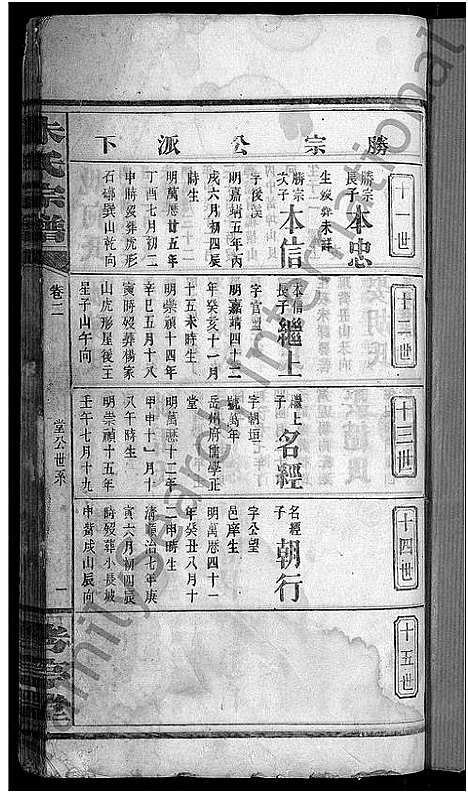 朱氏宗譜
卷二
堂公世系
一
勝宗公派下
十一世
勝宗長子 本忠
生歿葬未詳
勝宗次子 本信
字後溪
明嘉靖五年丙
戌六月初四辰
時生
明萬曆廿五年
丁酉七月初二
申時歿葬虎形
石磜巽山乾向
十二世
本信長子 繼上
字官
明嘉靖四十二
年癸亥十一月
十五未時生
明崇禎十四年
辛巳五月十八
寅時歿葬楊家
山虎形屋後王
星子山午向
十三世
繼上子 名經
字朝垣
號萬年
岳州府儒學正
堂
明萬曆十二年
甲申十一月十
八午時生
明崇禎十五年
壬午七月十九
十四世
名經子 朝行
字公望
邑庠生
明萬曆四十一
年癸丑八月十
二申時生
清順治七年庚
寅六月初四辰
時歿葬小長坡
申嘴戌山辰向
十五世
FamilySearch International